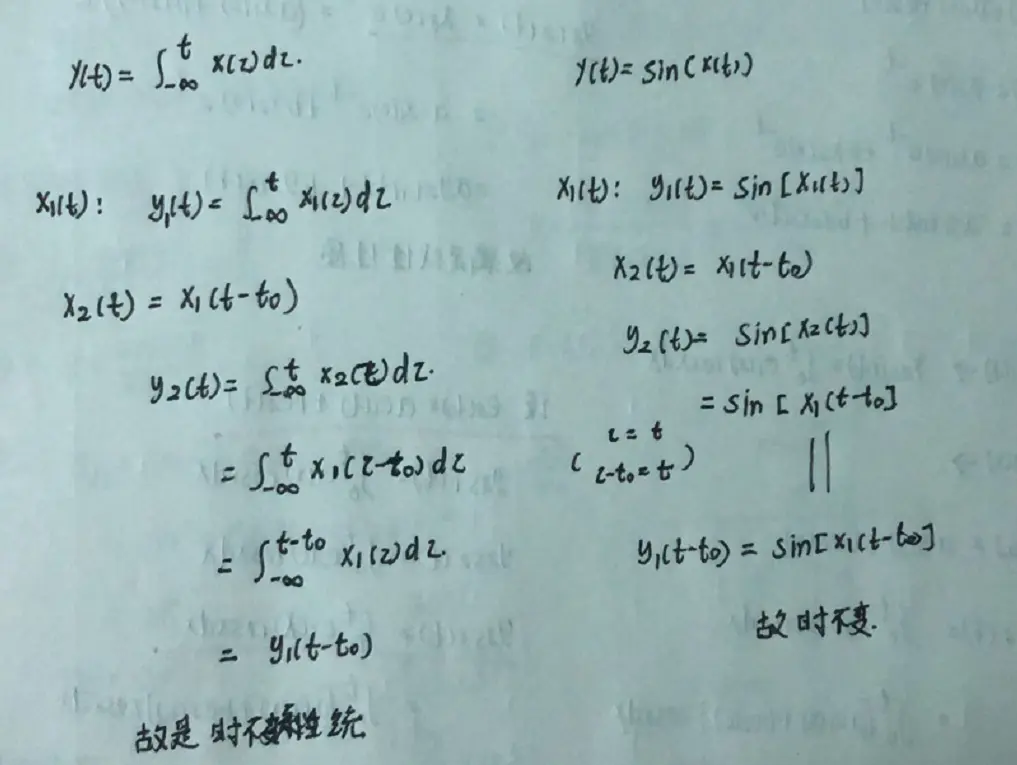 y(t) = ∫_{-∞}^{t} x(τ)dτ.
x₁(t): y₁(t) = ∫_{-∞}^{t} x₁(τ)dτ
x₂(t) = x₁(t-t₀)
y₂(t) = ∫_{-∞}^{t} x₂(τ)dτ.
= ∫_{-∞}^{t} x₁(τ-t₀)dτ
= ∫_{-∞}^{t-t₀} x₁(τ)dτ.
= y₁(t-t₀)
故是 时不变 统
y(t) = sin(x(t))
x₁(t): y₁(t) = sin[x₁(t)]
x₂(t) = x₁(t-t₀)
y₂(t) = sin[x₂(t)]
= sin[x₁(t-t₀]
( τ = t
τ-t₀ = t )
||
y₁(t-t₀) = sin[x₁(t-t₀)]
故时不变.